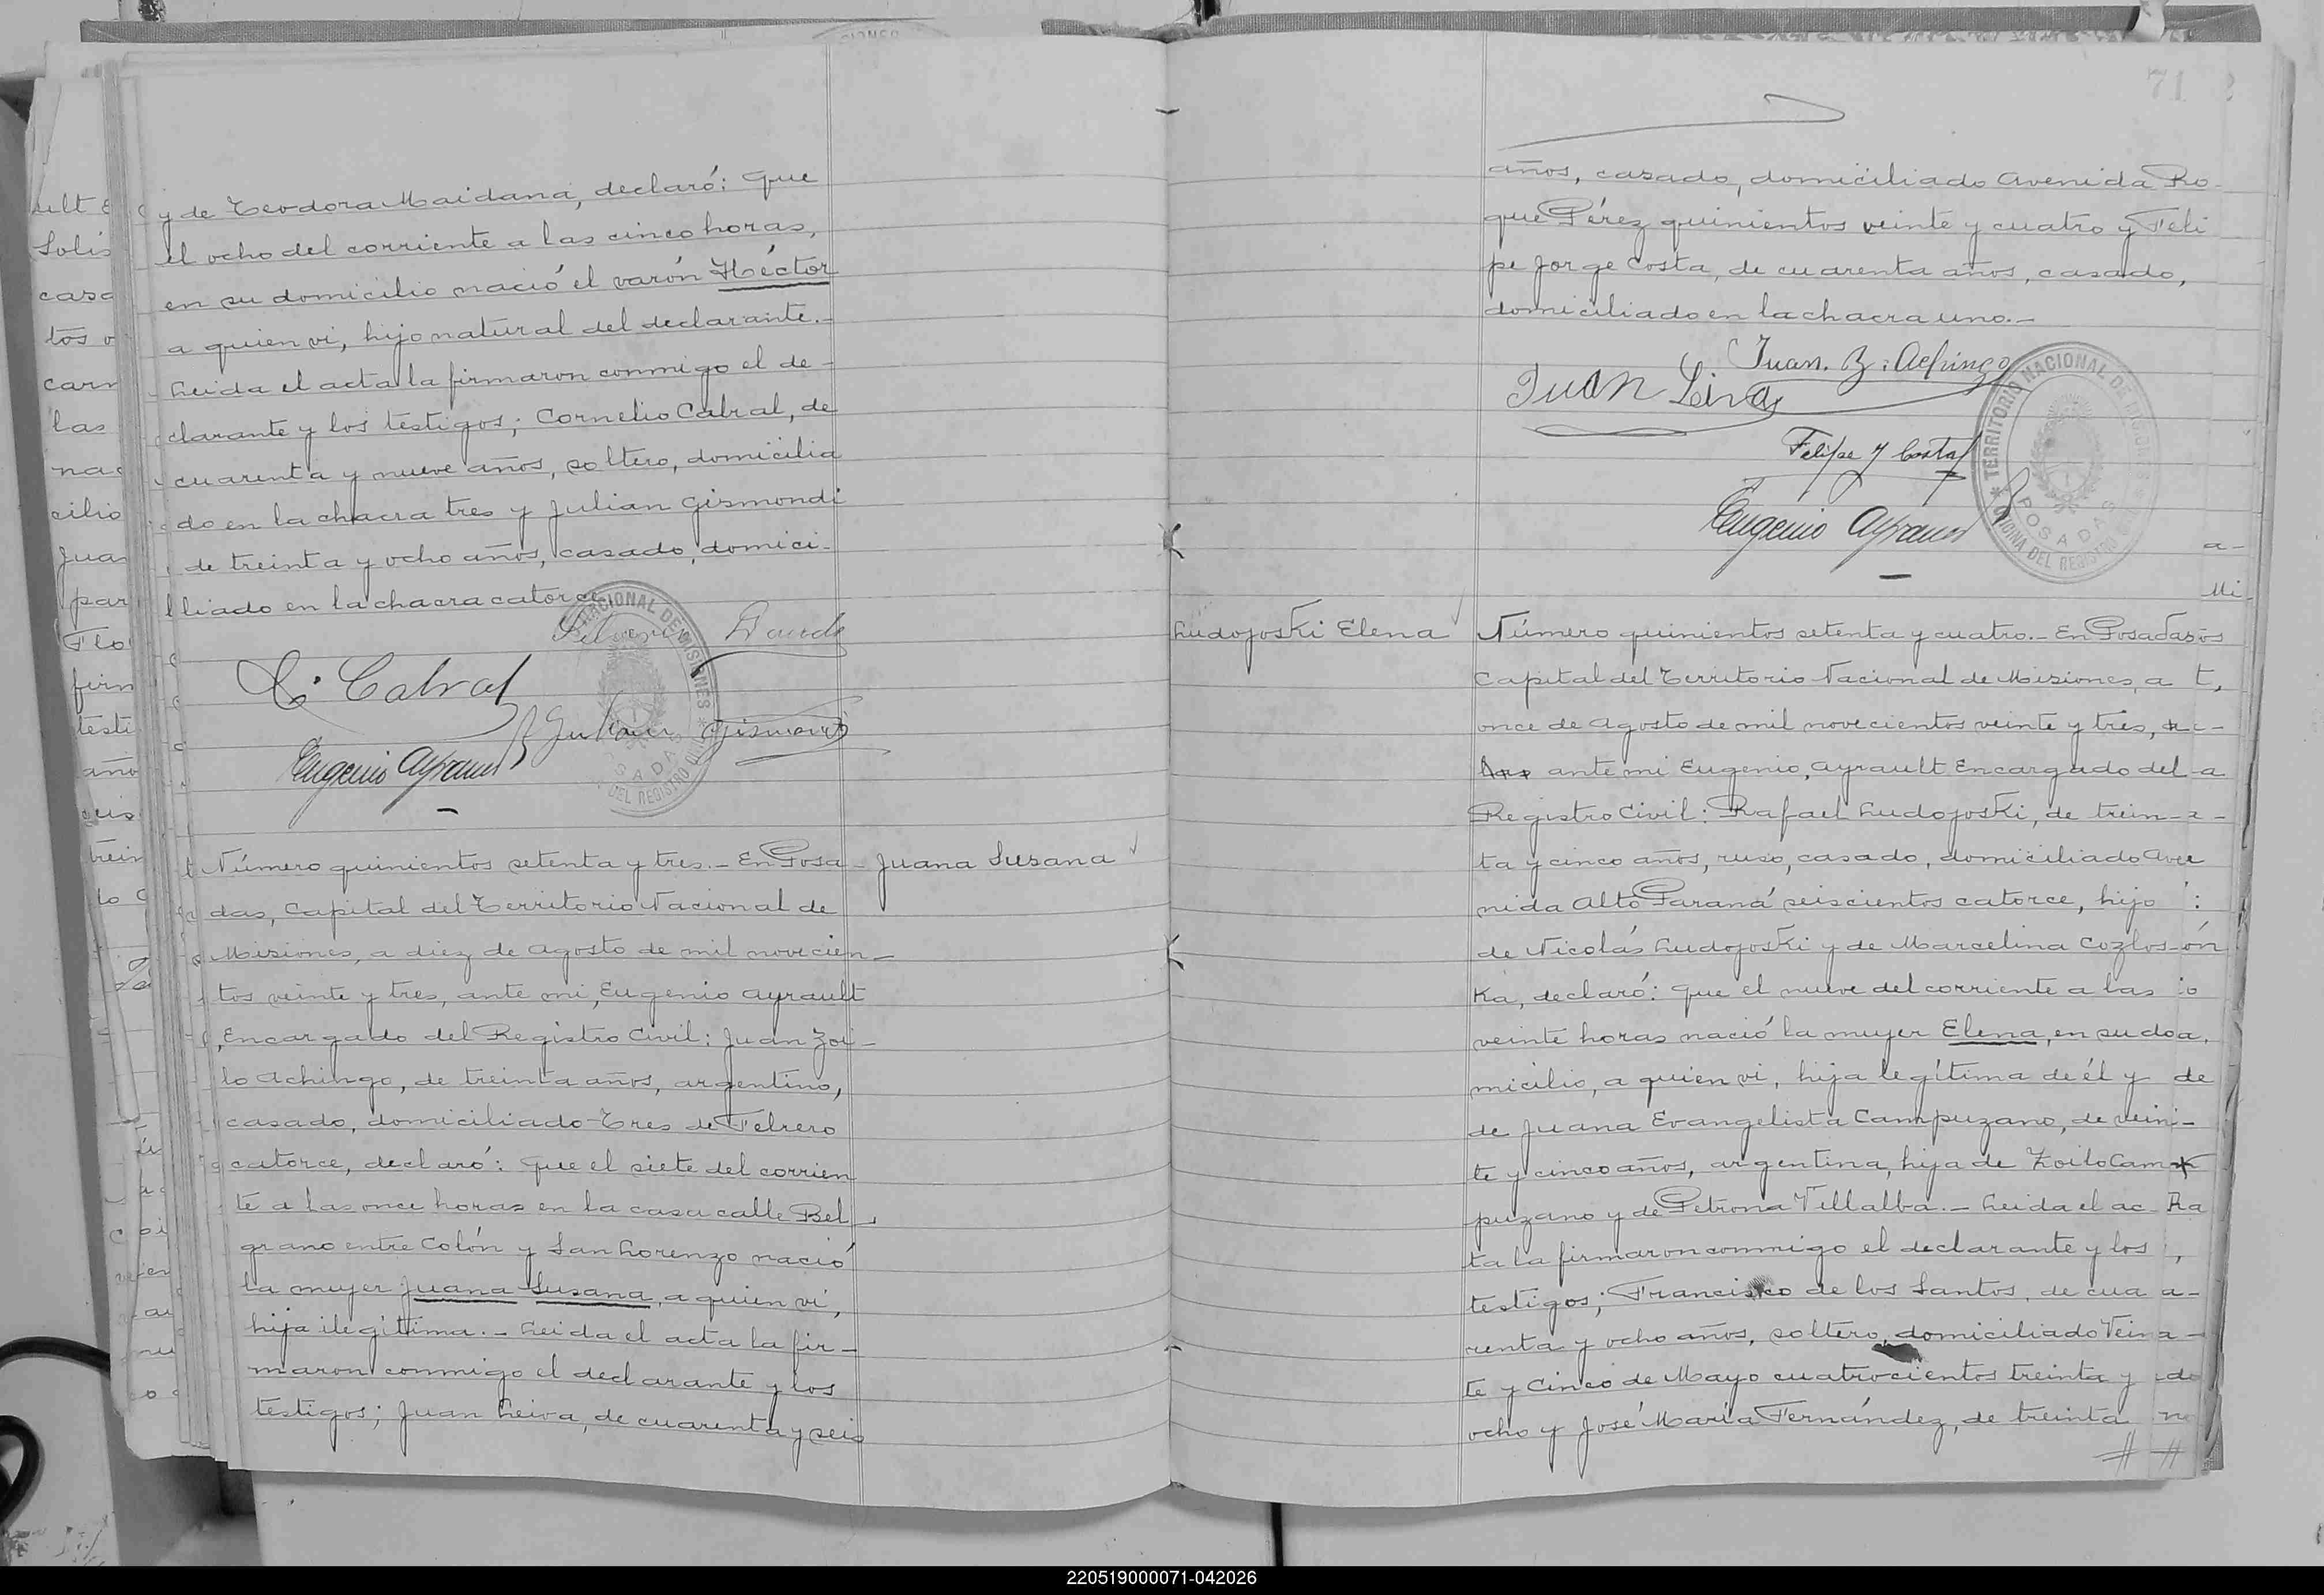 y de Teodora Maidana, declaró: Que
el ocho del corriente a las cinco horas,
en su domicilio nació el varón Héctor
a quien vi, hijo natural del declarante.-
Leida el acta la firmaron conmigo el de-
clarante y los testigos; Cornelio Cabral, de
cuarenta y nueve años, soltero, domicilia
do en la chacra tres y Julian Gismondi
de treinta y ocho años, casado, domici-
liado en la chacra catorce
C. Cabral
Julian Gismondi
Eugenio Ayrault
Número quinientos setenta y tres.- En Posa-
Juana Susana
das, Capital del Territorio Nacional de
Misiones, a diez de Agosto de mil novecien-
tos veinte y tres, ante mi, Eugenio Ayrault
Encargado del Registro Civil: Juan Zoi-
lo Achingo, de treinta años, argentino,
casado, domiciliado Tres de Febrero
catorce, declaró: Que el siete del corrien
te a las once horas en la casa calle Bel-
grano entre Colón y San Lorenzo nació
la mujer Juana Susana, a quien vi,
hija ilegítima.- Leida el acta la fir-
maron conmigo el declarante y los
testigos; Juan Leiva, de cuarenta y seis
71
años, casado, domiciliado Avenida Ro-
que Pérez quinientos veinte y cuatro y Feli
pe Jorge Costa, de cuarenta años, casado,
domiciliado en la chacra uno.-
Juan. Z. Achingo
Juan Leiva
Felipe J Costa
Eugenio Ayrault
TERRITORIO NACIONAL DE MISIONES
POSADAS
OFICINA DEL REGISTRO CIVIL
Ludojoski Elena
Número quinientos setenta y cuatro.- En Posadas
Capital del Territorio Nacional de Misiones, a
once de Agosto de mil novecientos veinte y tres,
ante mi Eugenio, Ayrault Encargado del
Registro Civil: Rafael Ludojoski, de trein-
ta y cinco años, ruso, casado, domiciliado Ave
nida Alto Paraná seiscientos catorce, hijo
de Nicolás Ludojoski y de Marcelina Cozlos-
ka, declaró: Que el nueve del corriente a las
veinte horas nació la mujer Elena, en su do
micilio, a quien vi, hija legítima de él y
de Juana Evangelista Campuzano, de vein-
te y cinco años, argentina, hija de Zoilo Cam-
puzano y de Petrona Villalba.- Leida el ac-
ta la firmaron conmigo el declarante y los
testigos; Francisco de los Santos, de cua
renta y ocho años, soltero, domiciliado Vein
te y Cinco de Mayo cuatrocientos treinta y
ocho y José María Fernández, de treinta
220519000071-042026